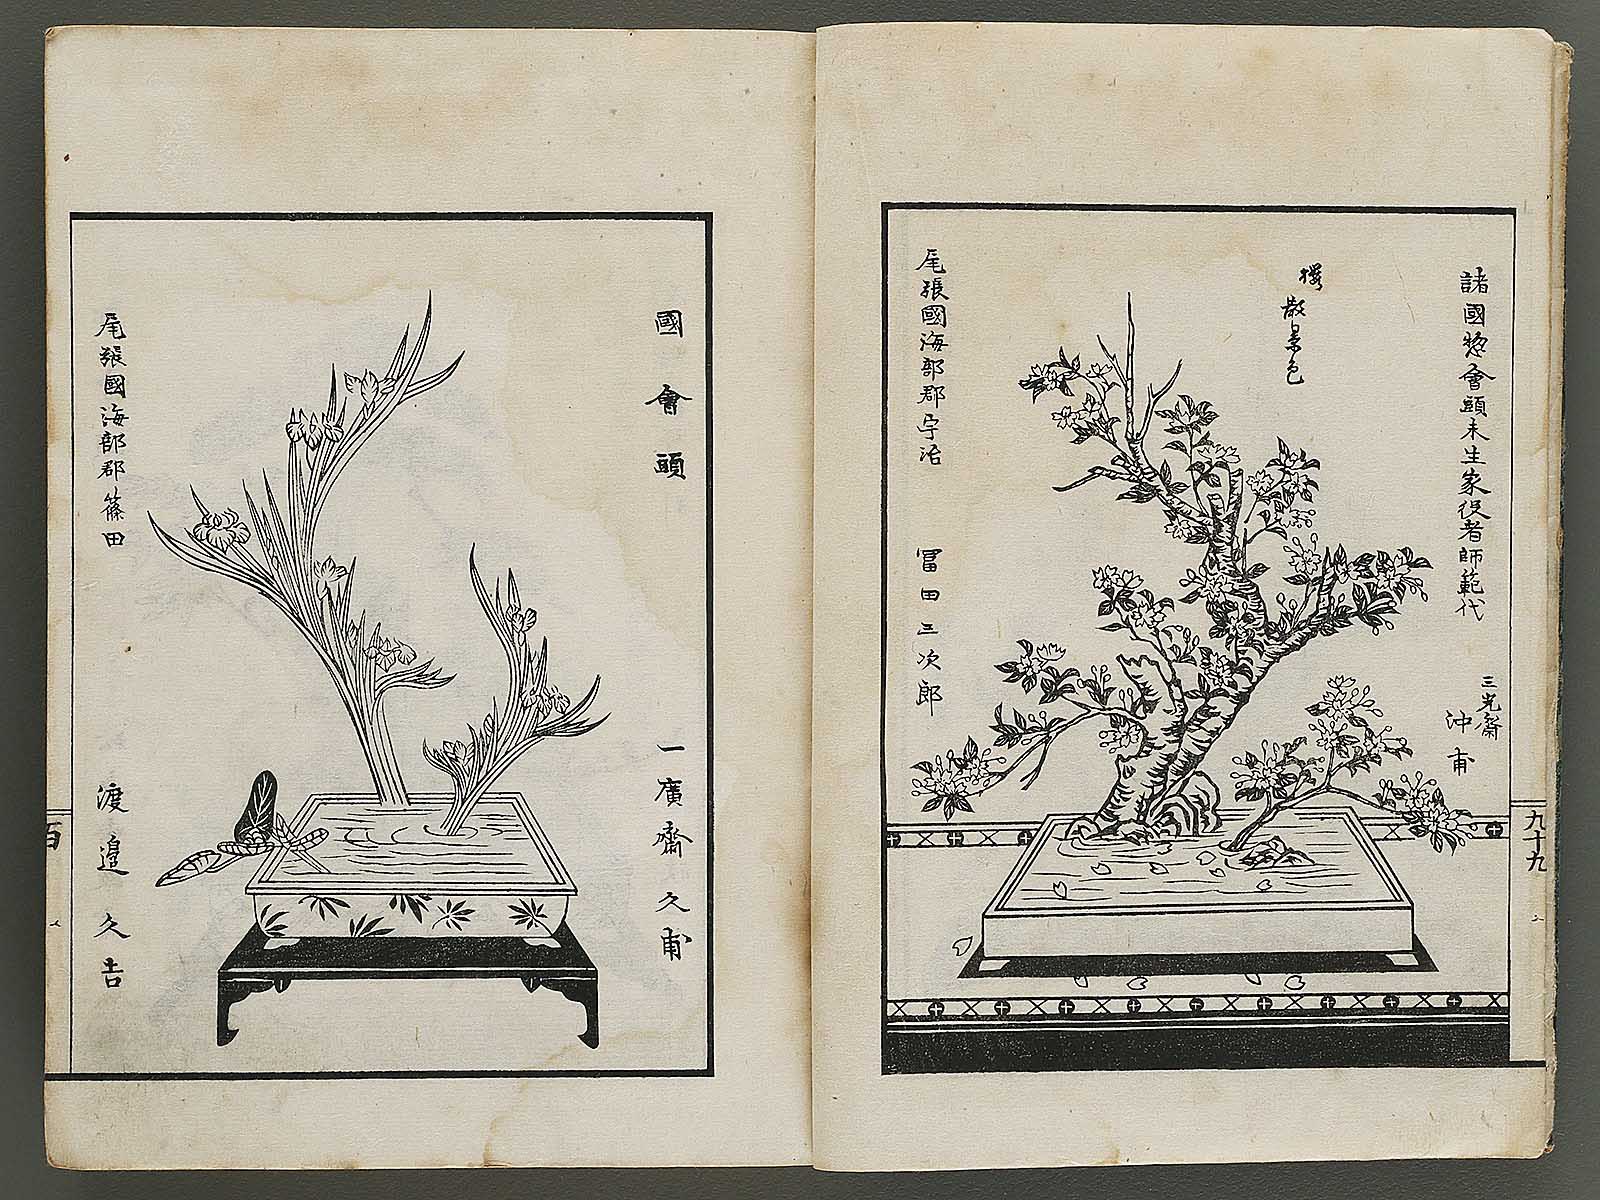 諸國惣會頭未生家役者師範代
三光齋
沖甫
櫻
散景色
尾張國海部郡宇治
冨田三次郎
九十九
國會頭
一廣齋久甫
尾張國海部郡篠田
渡邉久吉
百